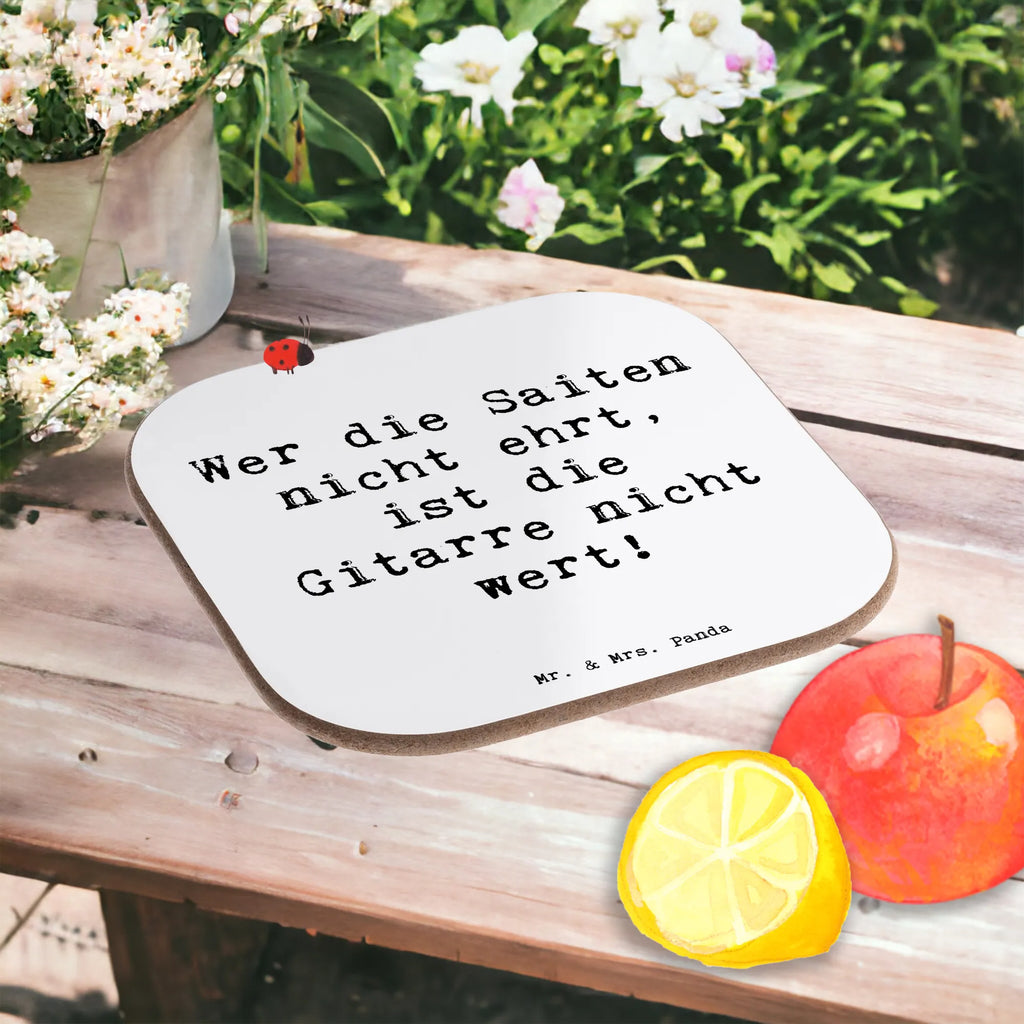 Wer die Saiten
nicht ehrt,
ist die
Gitarre nicht
wert!
Mr. & Mrs. Panda